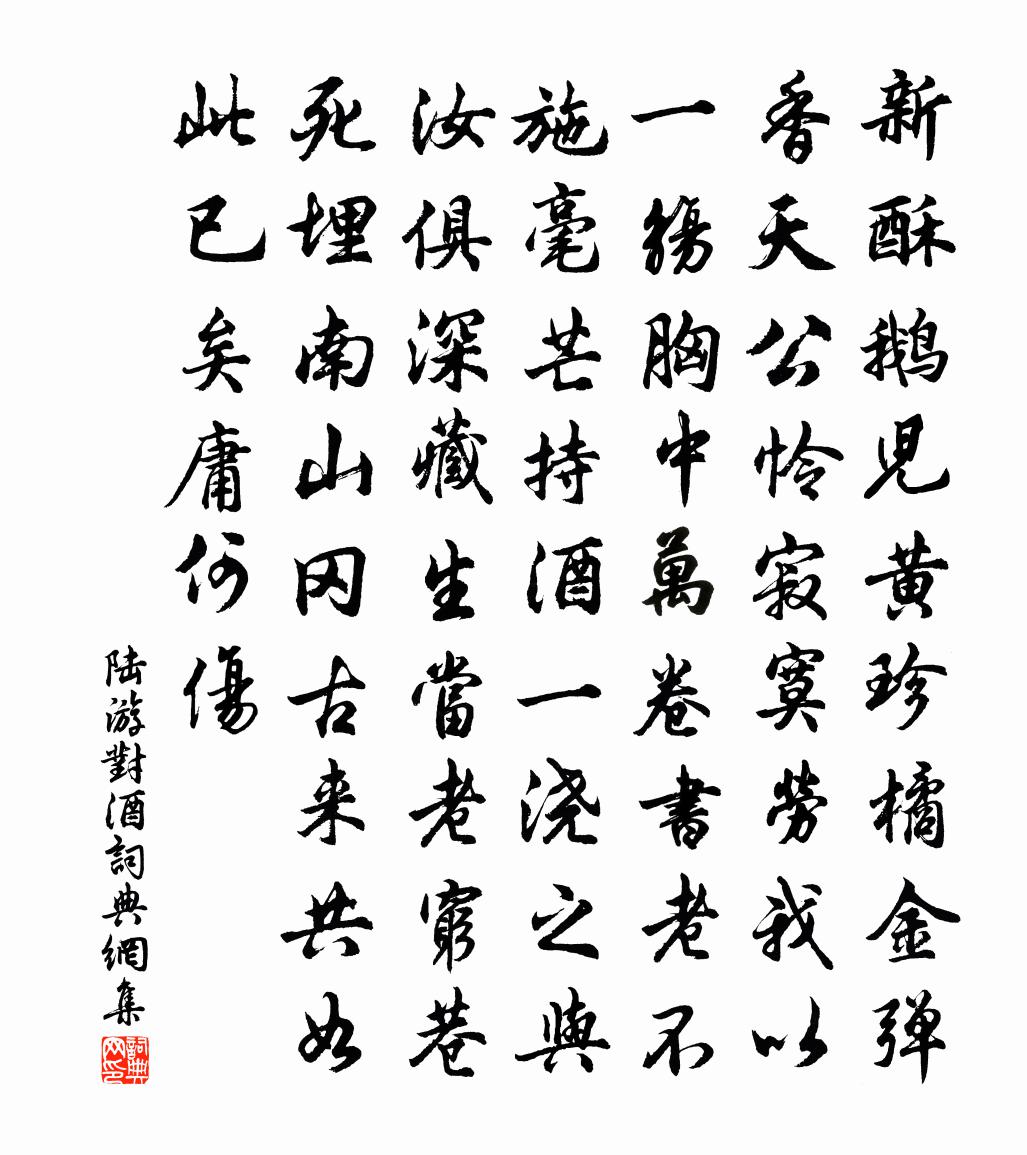 新酥鵝兒黄珍橘金弹
香天公怜寂寞勞我以
一觴胸中萬卷書老不
施毫芒持酒一浇之與
汝俱深藏生當老窮巷
死埋南山冈古来共如
此已矣庸何傷
陆游對酒詞典網集
詞典网印